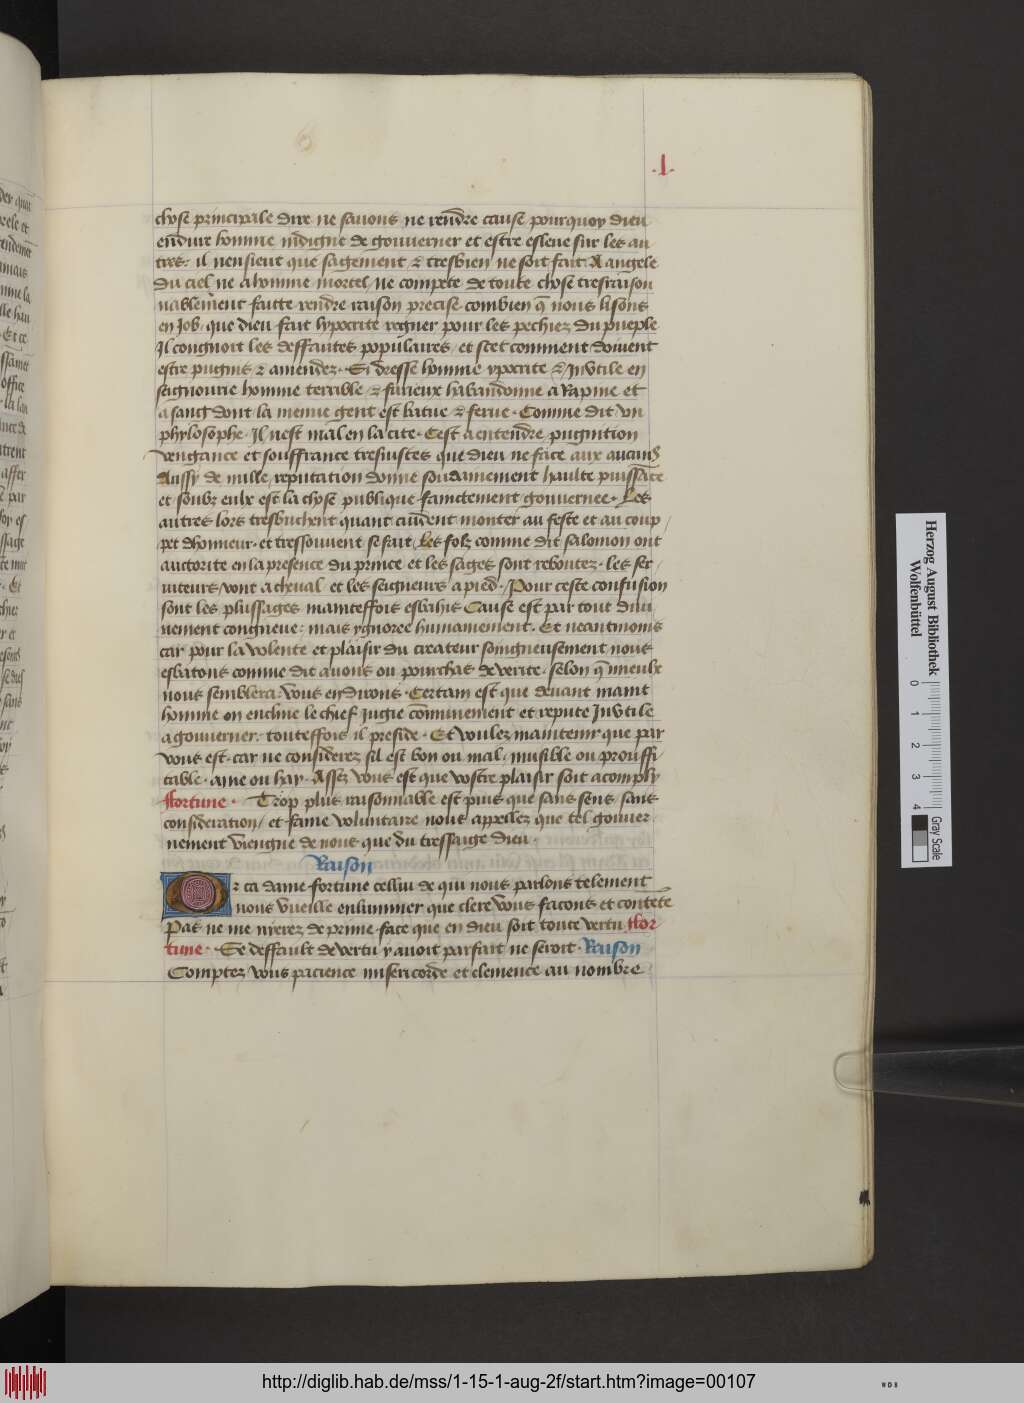 .l.
chose principale dire ne sauons ne rendre cause pourquoy dieu
endure homme indigne de gouuerner et estre esleue sur les au
tres. il nensieut que sagement et tresbien ne soit fait. A angele
du ciel ne a homme mortel ne compete de toute chose tresraison
nablement faitte rendre raison precise combien q̄ nous lisons
en Job. que dieu fait hypocrite regner pour les pechiez du pueple
Il congnoit les deffautes populaires / et scet comment doiuent
estre pugnis et amendez. Si dresse homme ypocrite et Inutile en
seignourie homme terrible et furieux habandonne a Rapine et
a sang dont la menue gent est batue et ferue. Comme dit vn
phylosophe. Il nest mal en la cite. Cest a entendre pugnition
vengance et souffrance tresiustes que dieu ne face aux aucuns
Aussy de nulle reputation donne soudainement haulte puissāce
et soubz eulx est la chose publique fainctement gouuernee. Les
autres lors tresbuchent quant cuident monter au feste et au coup /
pet dhonneur. et tressouuent se fait / Les folz comme dit salomon ont
auctorite en la presence du prince et les sages sont reboutez. les ser /
uiteurs vont a cheual et les seigneurs a pied. Pour ceste confusion
sont les plussages mainteffois esbahis Cause est par tout diui
nement congneue. mais ygnoree humainement. Et neantmoins
car pour la volente et plaisir du createur soingneusement nous
esbatons comme dit auons ou pourchas de verite. selon q̄ mieulx
nous semblera vous en dirons. Certain est que deuant maint
homme on encline le chief iugie cōmunement et repute Inutile
a gouuerner. touteffois il preside. Et voulez maintenir que par
vous est. car ne considerez sil est bon ou mal / nuisible ou prouffi
table. aime ou hay. Assez vous est que vostre plaisir soit acomply
Fortune. Trop plus raisonnable est puis que sans sens / sans
consideration / et fame voluntaire nous appellez que tel gouuer
nement viengne de nous que du tressage dieu.
Raison
Or ca dame fortune cellui de qui nous parlons telement
nous vueille enluminer que clere vous facons et contēte
Pas ne me nyerez de prime face que en dieu soit toute vertu For
tune. Se deffault de vertu y auoit parfait ne seroit. Raison
Comptez vous pacience misericorde et clemence au nombre
Herzog August Bibliothek
Wolfenbüttel
0 1 2 3 4
Gray Scale
http://diglib.hab.de/mss/1-15-1-aug-2f/start.htm?image=00107